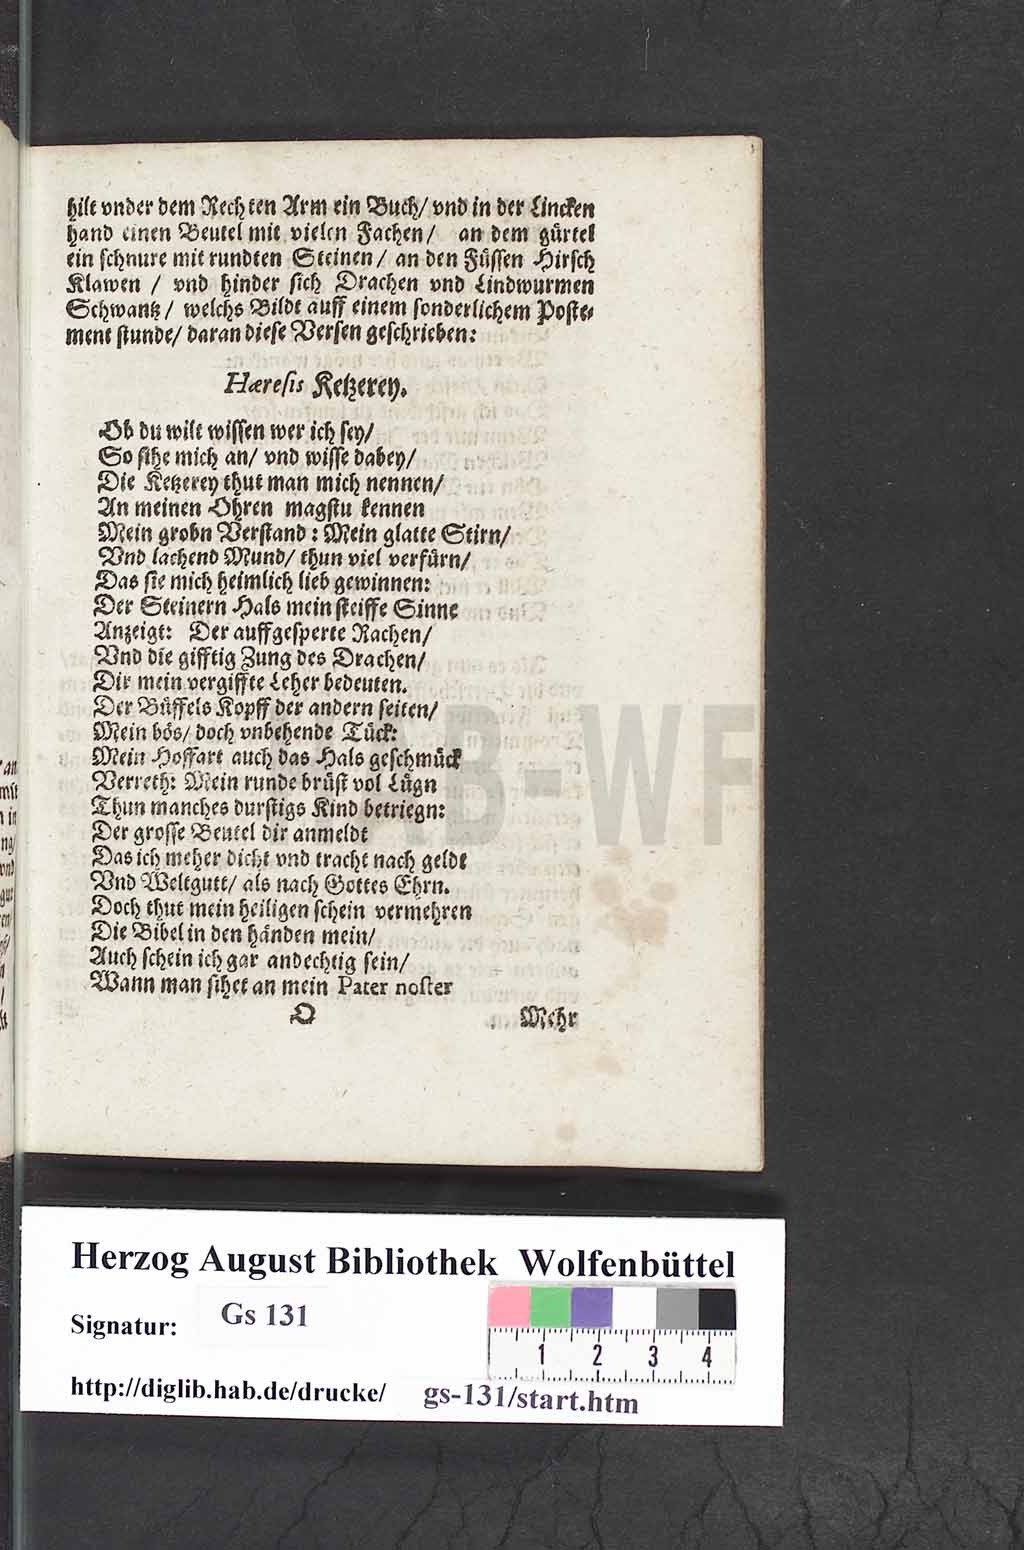 hilt vnder dem Rechten Arm ein Buch/ vnd in der Lincken
hand einen Beutel mit vielen Fachen/ an dem gürtel
ein schnure mit rundten Steinen/ an den Füssen Hirsch
Klawen / vnd hinder sich Drachen vnd Lindwurmen
Schwantz/ welchs Bildt auff einem sonderlichem Poste-
ment stunde/ daran diese Versen geschrieben:
Hæresis Ketzerey.
Ob du wilt wissen wer ich sey/
So sihe mich an/ vnd wisse dabey/
Die Ketzerey thut man mich nennen/
An meinen Ohren magstu kennen
Mein grobn Verstand: Mein glatte Stirn/
Vnd lachend Mund/ thun viel verfürn/
Das sie mich heimlich lieb gewinnen:
Der Steinern Hals mein steiffe Sinne
Anzeigt: Der auffgesperte Rachen/
Vnd die gifftig Zung des Drachen/
Dir mein vergiffte Leher bedeuten.
Der Büffels Kopff der andern seiten/
Mein bös/ doch vnbehende Tück:
Mein Hoffart auch das Hals geschmück
Verreth: Mein runde brüst vol Lügn
Thun manches durstigs Kind betriegn:
Der grosse Beutel dir anmeldt
Das ich meher dicht vnd tracht nach geldt
Vnd Weltgutt/ als nach Gottes Ehrn.
Doch thut mein heiligen schein vermehren
Die Bibel in den händen mein/
Auch schein ich gar andechtig sein/
Wann man sihet an mein Pater noster
O Mehr
HAB-WF
Herzog August Bibliothek Wolfenbüttel
Signatur: Gs 131
1 2 3 4
http://diglib.hab.de/drucke/ gs-131/start.htm